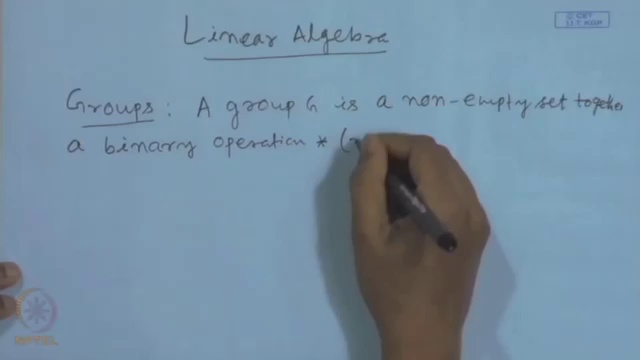 Linear Algebra
Groups : A group G is a non-empty set together
a binary operation * (
© CET
I.I.T. KGP
NPTEL